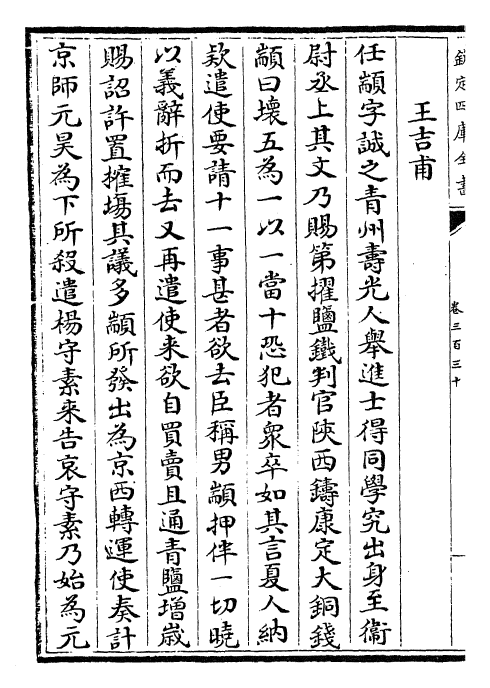 欽定四庫全書
卷三百三十
王吉甫
任顓字誠之青州壽光人舉進士得同學究出身至衞
尉丞上其文乃賜第擢鹽鐵判官陜西鑄康定大銅錢
顓曰壞五為一以一當十恐犯者衆卒如其言夏人納
欵遣使要請十一事甚者欲去臣稱男顓押伴一切曉
以義辭折而去又再遣使来欲自買賣且通青鹽増歳
賜詔許置搉塲其議多顓所發出為京西轉運使奏計
京師元昊為下所殺遣楊守素来告哀守素乃始為元